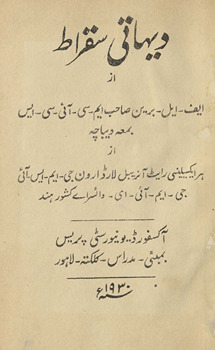 دیہاتی سقراط
از
ایف - ایل - برین صاحب ایم - سی - آئی - سی - ایس
بمعہ دیباچہ
از
ہز ایکسیلنسی رایٹ آنریبل لارڈ ارون جی - ایم - ایس - آئی
جی - ایم - آئی - ای - وائسراے کشور ہند
آکسفورڈ یونیورسٹی پریس
بمبئی - مدراس - کلکتہ - لاہور
۱۹۳۰ء